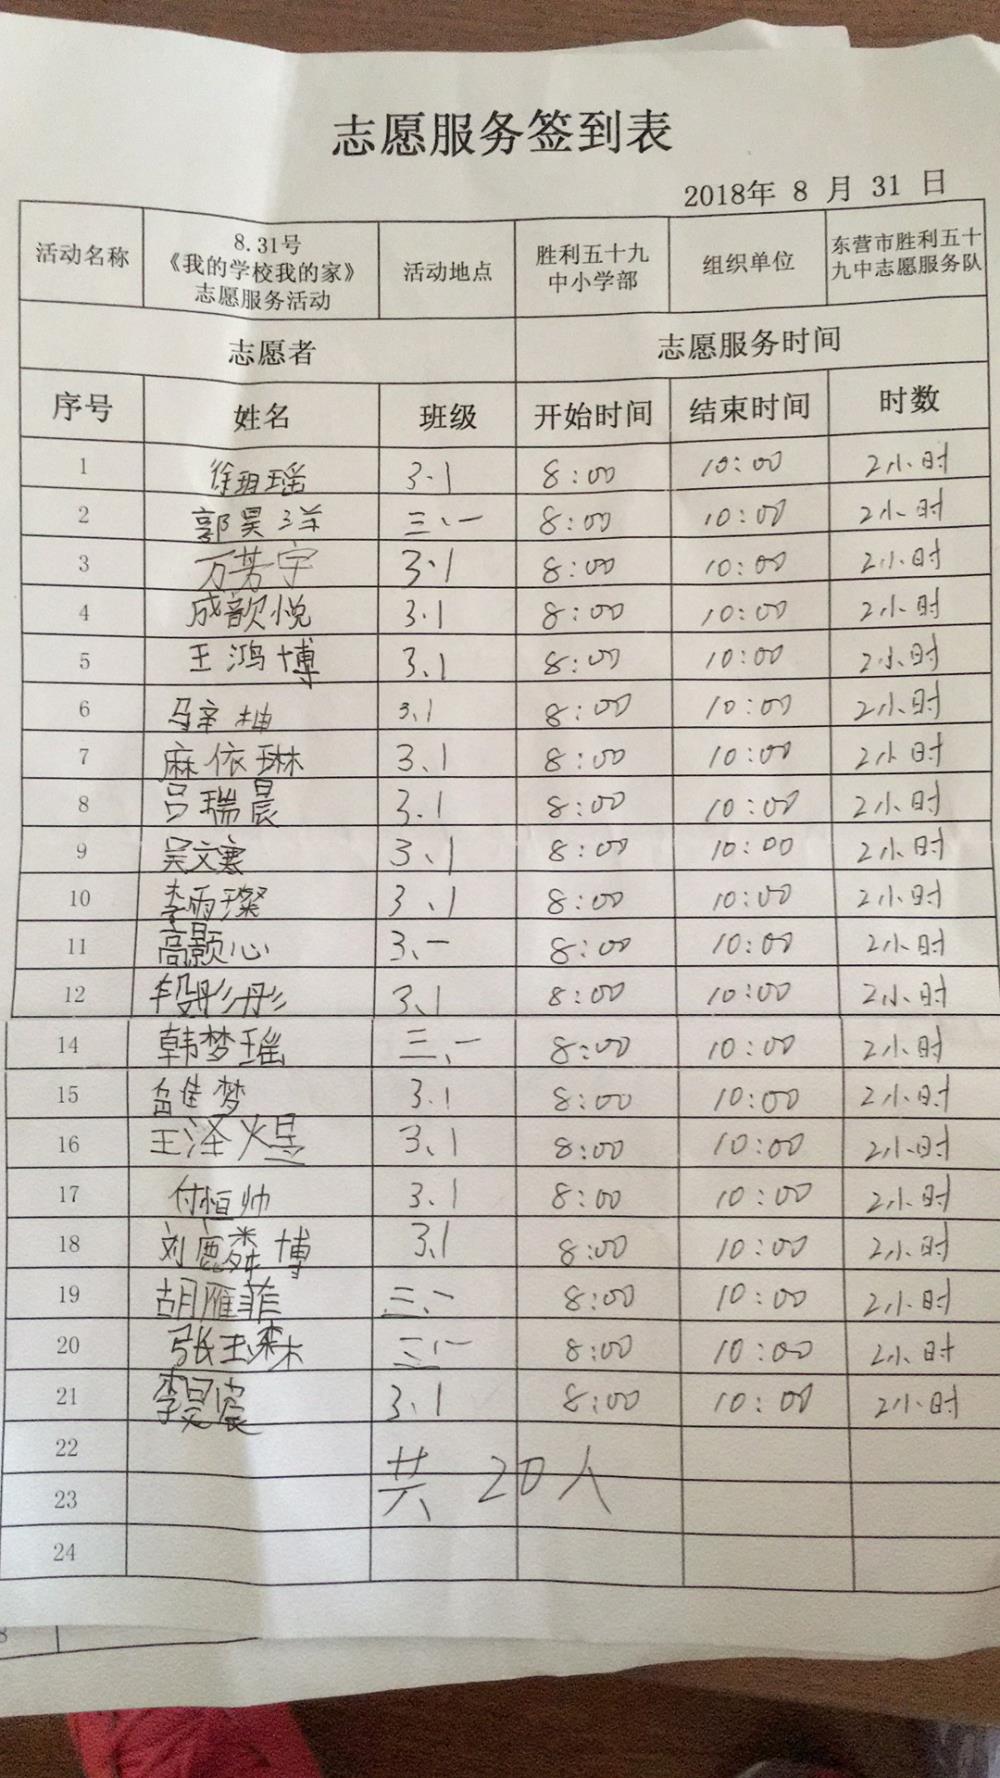 志愿服务签到表
2018年 8 月 31 日
活动名称 8.31号《我的学校我的家》志愿服务活动 活动地点 胜利五十九中小学部 组织单位 东营市胜利五十九中志愿服务队
志愿者 志愿服务时间
序号 姓名 班级 开始时间 结束时间 时数
1 徐珇瑶 3.1 8:00 10:00 2小时
2 郭昊洋 三、一 8:00 10:00 2小时
3 万芳宇 3.1 8:00 10:00 2小时
4 成歆悦 3.1 8:00 10:00 2小时
5 王鸿博 3.1 8:00 10:00 2小时
6 马辛柚 3.1 8:00 10:00 2小时
7 麻依琳 3、1 8:00 10:00 2小时
8 吕瑞晨 3.1 8:00 10:00 2小时
9 吴文骞 3、1 8:00 10:00 2小时
10 李雨璨 3、1 8:00 10:00 2小时
11 高颢心 3、一 8:00 10:00 2小时
12 段彤彤 3.1 8:00 10:00 2小时
14 韩梦瑶 三、一 8:00 10:00 2小时
15 佳梦 3.1 8:00 10:00 2小时
16 王泽煜 3、1 8:00 10:00 2小时
17 付恒帅 3.1 8:00 10:00 2小时
18 刘博 3.1 8:00 10:00 2小时
19 胡雁菲 三、一 8:00 10:00 2小时
20 张玉森 三、一 8:00 10:00 2小时
21 李昊宸 3.1 8:00 10:00 2小时
22
共 20人
23
24